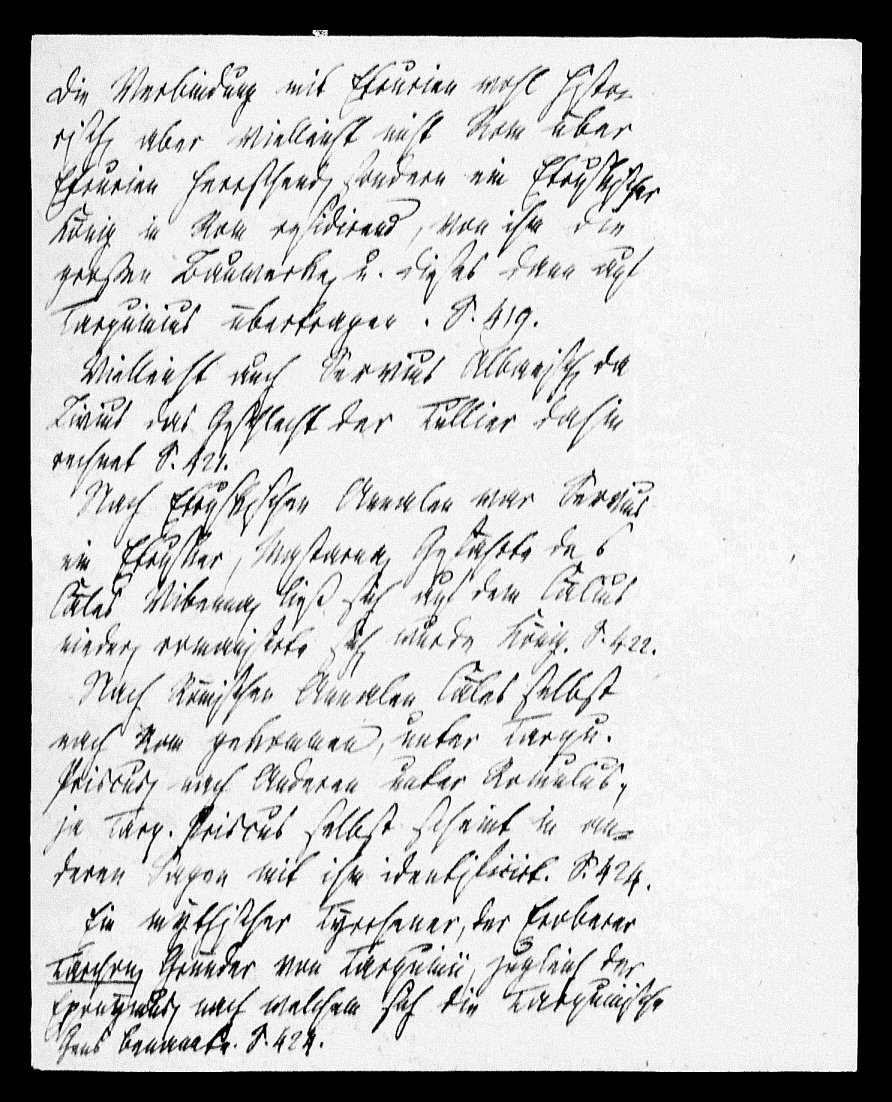 Die Verbindung mit Etrurien wohl histo-
risch, aber vielleicht nicht Rom über
Etrurien herrschend, sondern ein Etruskischer
König in Rom residirend, von ihm die
großen Bauwerke, u. dieses dann auf
Tarquinius übertragen. S. 419.
Vielleicht auch Servius Albanisch, da
Livius das Geschlecht der Tullier dahin
rechnet S. 421.
Nach Etruskischen Annalen war Servius
ein Etrusker, Mastarna, Gefährte des
Cäles Vibenna, ließ sich auf dem Cälius
nieder, romanisirte sich, wurde König. S. 422.
Nach Römischen Annalen Cäles selbst
nach Rom gekommen, unter Tarqu.
Priscus, nach Anderen unter Romulus,
ja Tarq. Priscus selbst scheint in an-
deren Sagen mit ihm identificirt. S. 424.
Ein mythischer Tyrrhener, der Eroberer
Tarchon, Gründer von Tarquinii, zugleich der
Eponymus, nach welchem sich die Tarquinische
Gens benannte. S. 424.